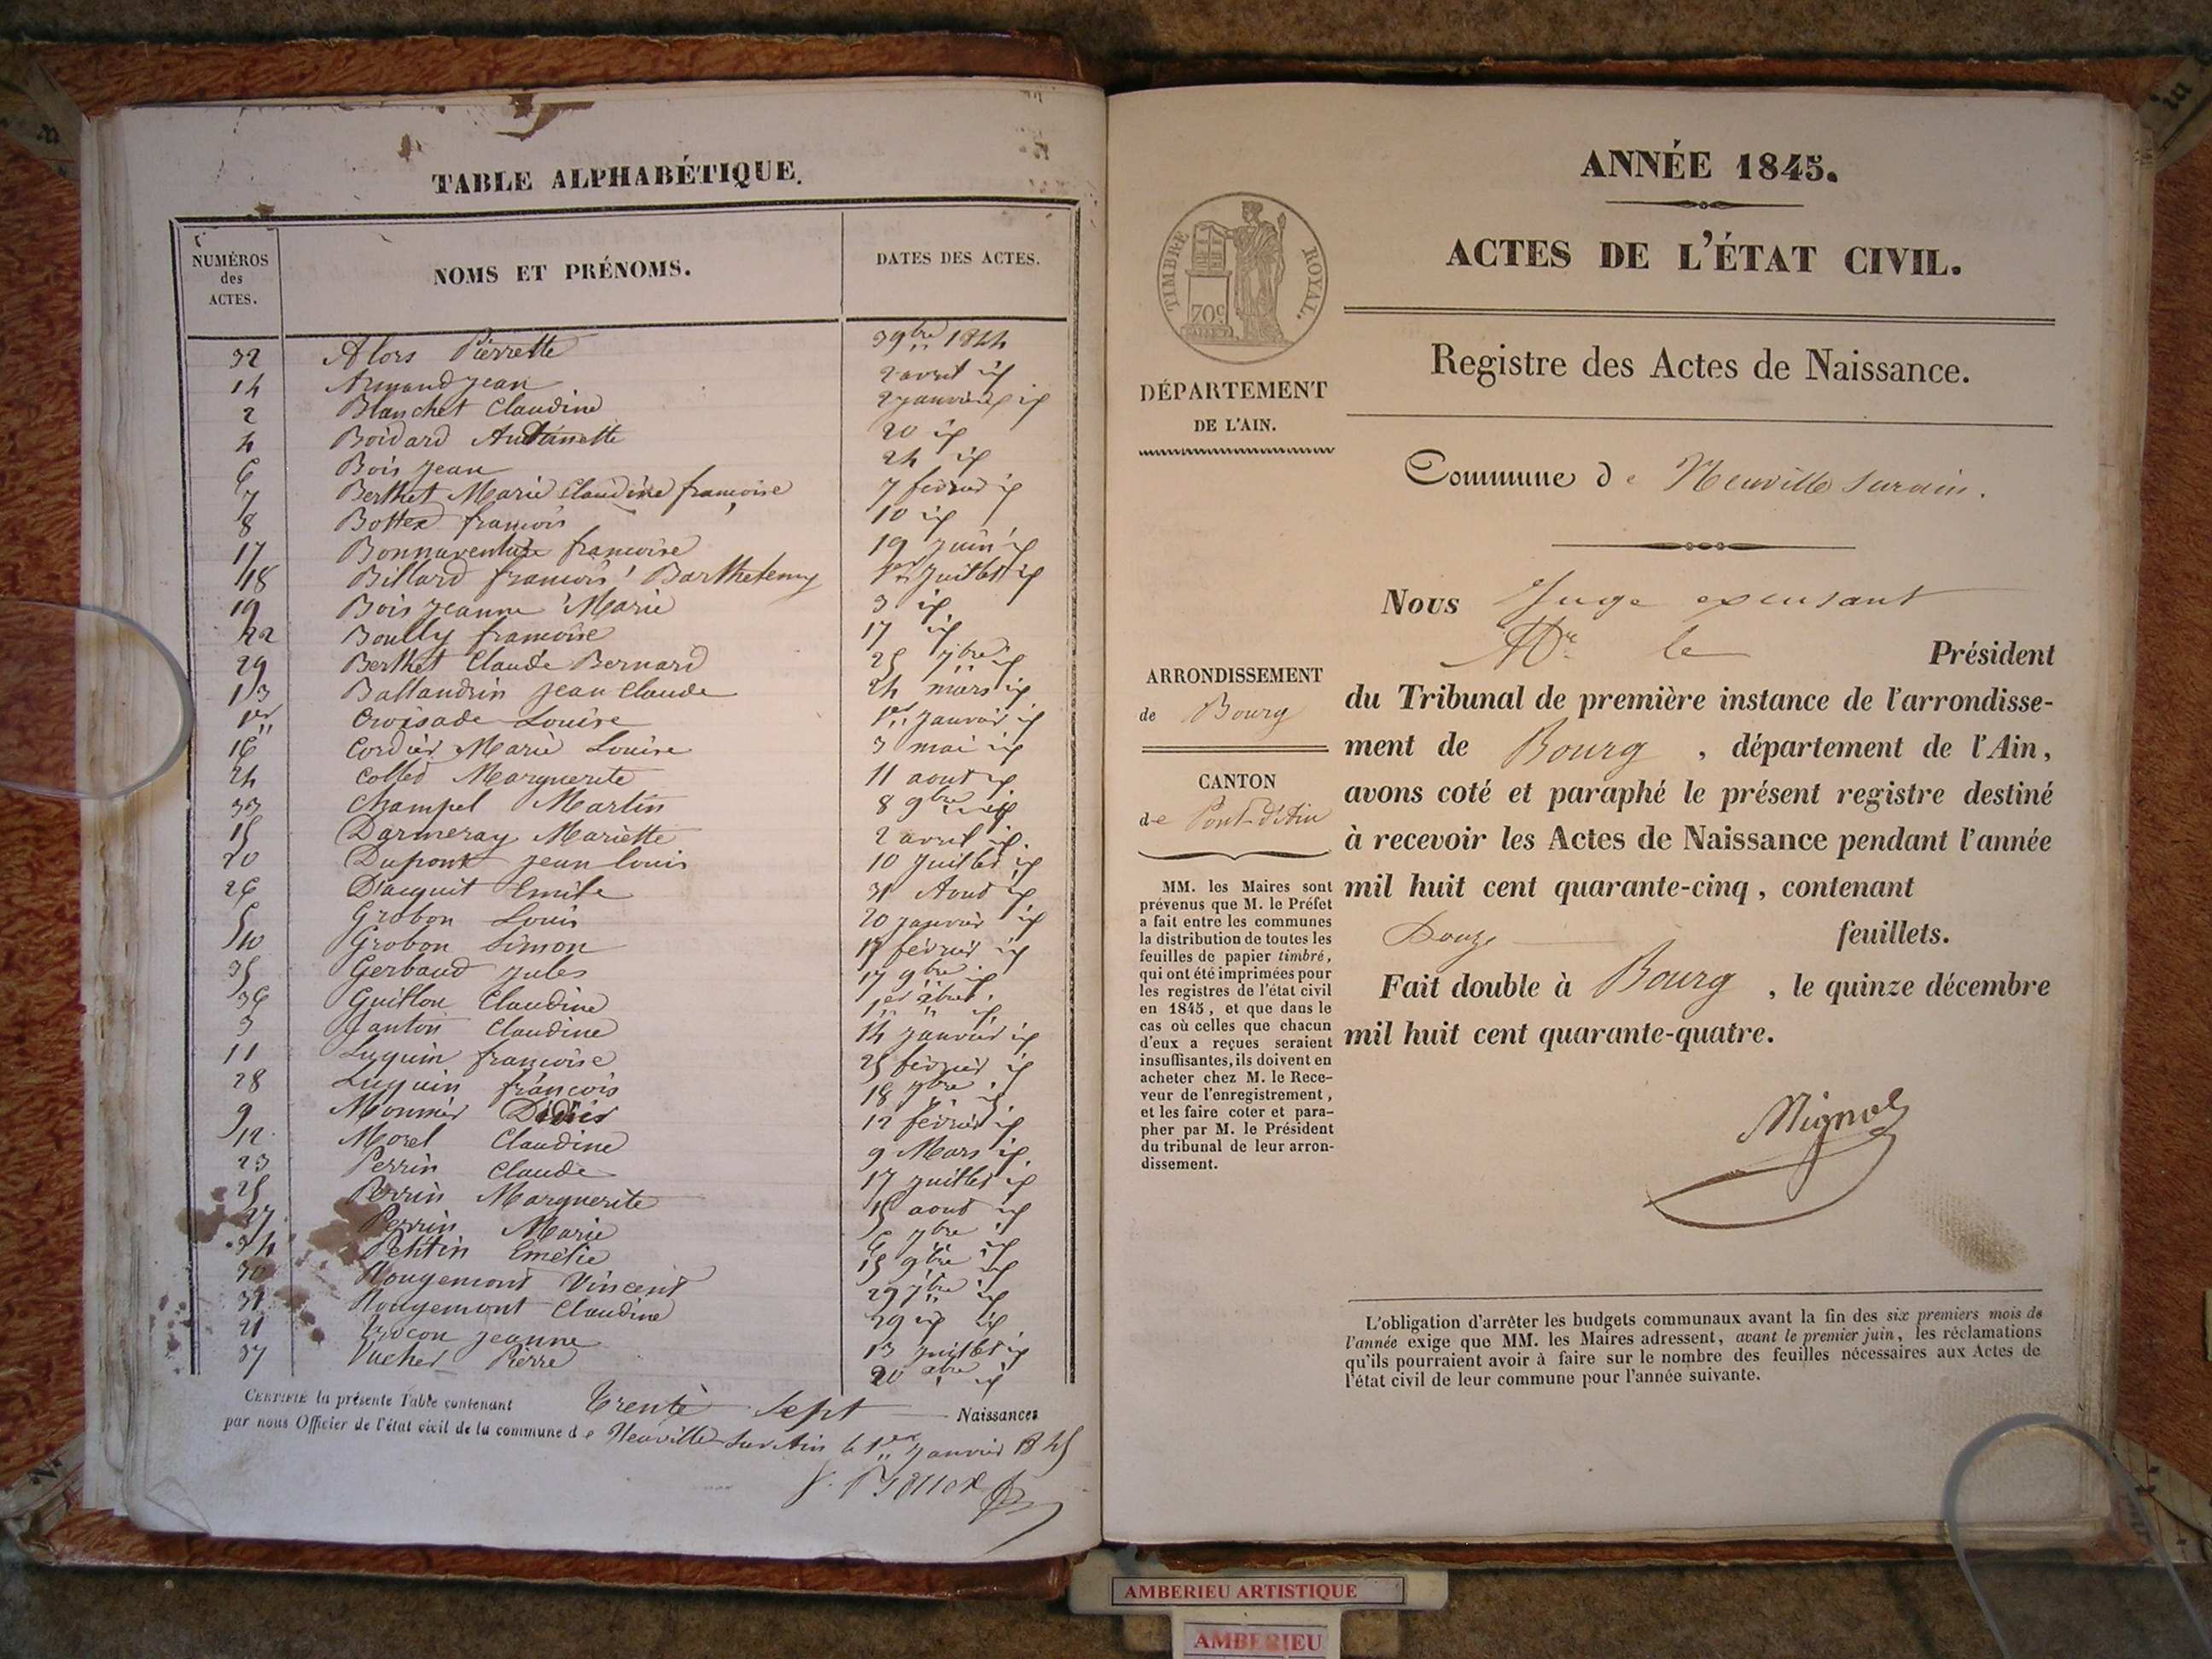 TABLE ALPHABÉTIQUE.
NUMÉROS des ACTES.
NOMS ET PRÉNOMS.
DATES DES ACTES.
32 Alors Pierrette 3 9bre 1844
14 Armand Jean 2 avril id
2 Blanchet Claudine 2 janvier id
4 Boidard Antoinette 20 id
6 Bois Jean 24 id
7 Berthet Marie Claudine françoise 7 fevrier id
8 Bottex françois 10 id
17 Bonnaventure françoise 19 juin id
18 Billard françois Barthelemy 1er Juillet id
19 Bois Jeanne Marie 3 id
22 Boully françoise 17 id
29 Berthet Claude Bernard 25 7bre id
13 Ballandrin Jean Claude 24 mars id
1er Croisade Louise 1er janvier id
16 Cordier Marie Louise 3 mai id
24 Collet Marguerite 11 aout id
33 Champel Martin 8 9bre id
15 Darmeray Mariette 2 avril id.
20 Dupont Jean Louis 10 Juillet id
26 Dacquit Emile 31 Aout id
5 Grobon Louis 20 janvier id
10 Grobon Simon fevrier id
35 Gerbaud Jules 17 9bre id
36 Guillon Claudine 1er xbre id
3 Janton Claudine 14 janvier id
11 Luquin françoise 25 fevrier id
28 Luquin françois 18 7bre id
9 Monnier Denis 12 fevrier id
12 Morel Claudine 9 Mars id.
23 Perrin Claude 17 juillet id
25 Perrin Marguerite 15 aout id
27 Perrin Marie 6 7bre id
34 Petitin Emelie 15 9bre id
30 Rougemont Vincent 29 7bre id
31 Rougemont Claudine 29 id id
21 Trocon Jeanne 13 Juillet id
37 Vucher Pierre 20 xbre id
CERTIFIÉ la présente Table contenant Trente Sept Naissances
par nous Officier de l'état civil de la commune de Neuville sur Ain le 1er Janvier 1845
Bottex
ANNÉE 1845.
ACTES DE L'ÉTAT CIVIL.
TIMBRE ROYAL.
70c
Registre des Actes de Naissance.
DÉPARTEMENT
DE L'AIN.
Commune de Neuville surain.
Nous Juge excusant
Mr le Président
ARRONDISSEMENT
de Bourg
du Tribunal de première instance de l'arrondisse-
ment de Bourg, département de l'Ain,
CANTON
de Pont-d'Ain
avons coté et paraphé le présent registre destiné
à recevoir les Actes de Naissance pendant l'année
mil huit cent quarante-cinq, contenant
Douze feuillets.
Fait double à Bourg, le quinze décembre
mil huit cent quarante-quatre.
Mignot
MM. les Maires sont
prévenus que M. le Préfet
a fait entre les communes
la distribution de toutes les
feuilles de papier timbré,
qui ont été imprimées pour
les registres de l'état civil
en 1845, et que dans le
cas où celles que chacun
d'eux a reçues seraient
insuffisantes, ils doivent en
acheter chez M. le Rece-
veur de l'enregistrement,
et les faire coter et para-
pher par M. le Président
du tribunal de leur arron-
dissement.
L'obligation d'arrêter les budgets communaux avant la fin des six premiers mois de
l'année exige que MM. les Maires adressent, avant le premier juin, les réclamations
qu'ils pourraient avoir à faire sur le nombre des feuilles nécessaires aux Actes de
l'état civil de leur commune pour l'année suivante.
AMBERIEU ARTISTIQUE
AMBERIEU